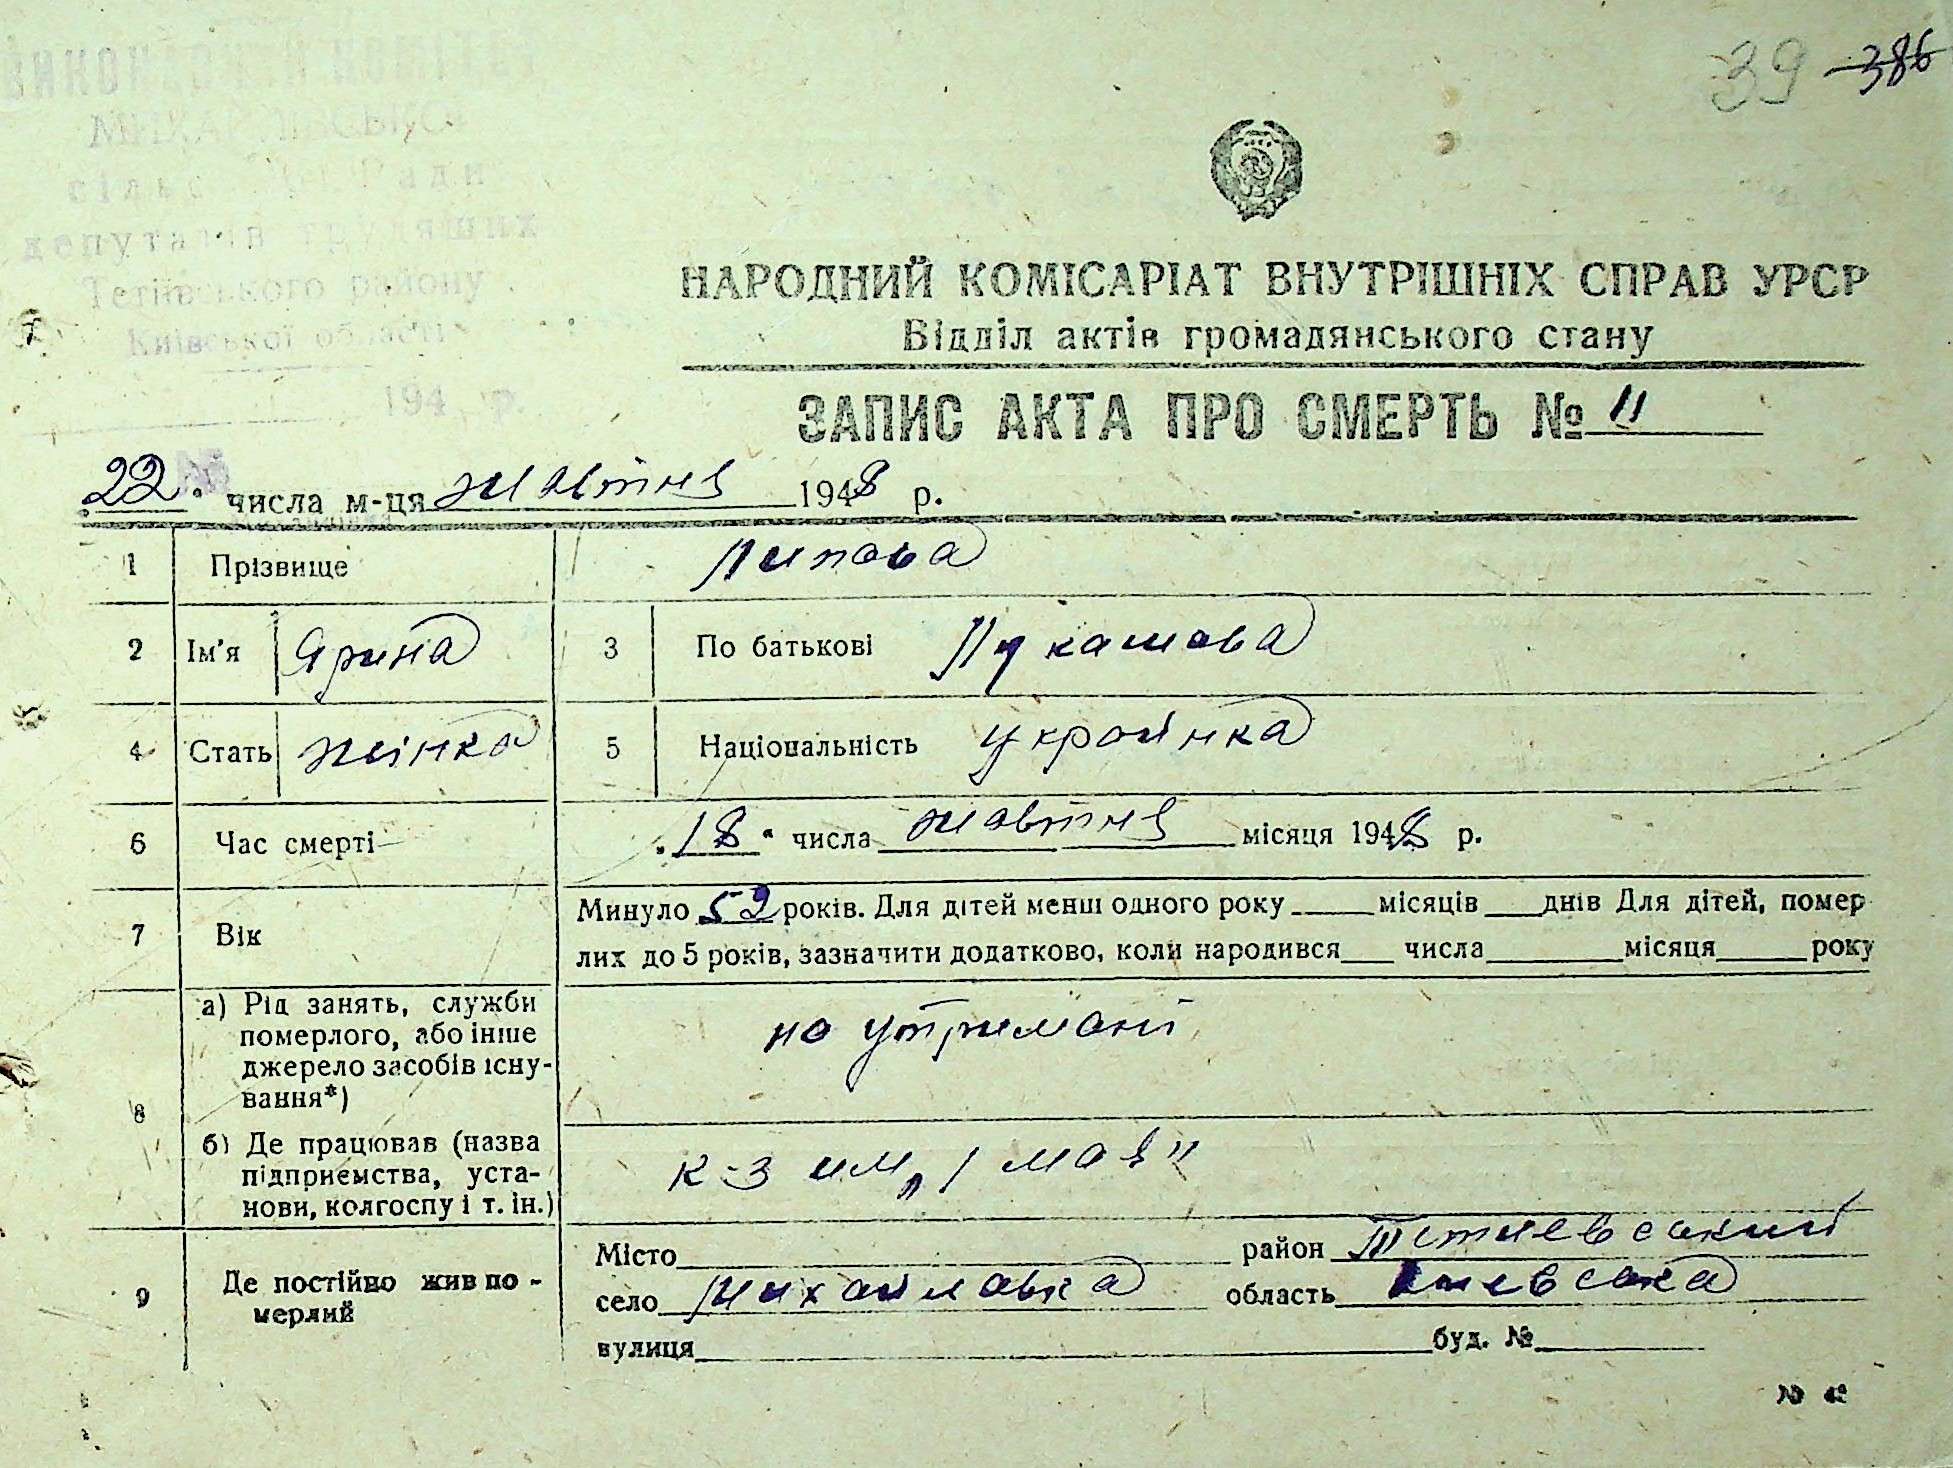 39 386
ВИКОНАВЧИЙ КОМІТЕТ
сільської Ради
депутатів трудящих
Тетіївського району
Київської області
194 р.
НАРОДНИЙ КОМІСАРІАТ ВНУТРІШНІХ СПРАВ УРСР
Відділ актів громадянського стану
ЗАПИС АКТА ПРО СМЕРТЬ № 11
22 " числа м-ця жовтня 1948 р.
1 Прізвище Липова
2 Ім'я Ярина 3 По батькові Лукашова
4 Стать жінка 5 Національність українка
6 Час смерті „18 " числа жовтня місяця 1948 р.
7 Вік
Минуло 52 років. Для дітей менш одного року місяців днів Для дітей, помер
лих до 5 років, зазначити додатково, коли народився числа місяця року
8
а) Рід занять, служби
померлого, або інше
джерело засобів існу-
вання*)
на утримані
б) Де працював (назва
підприємства, уста-
нови, колгоспу і т. ін.)
к-з им „1 мая"
9 Де постійно жив по-
мерлий
Місто район Тетиевський
село Михайловка область Киевська
вулиця буд. №